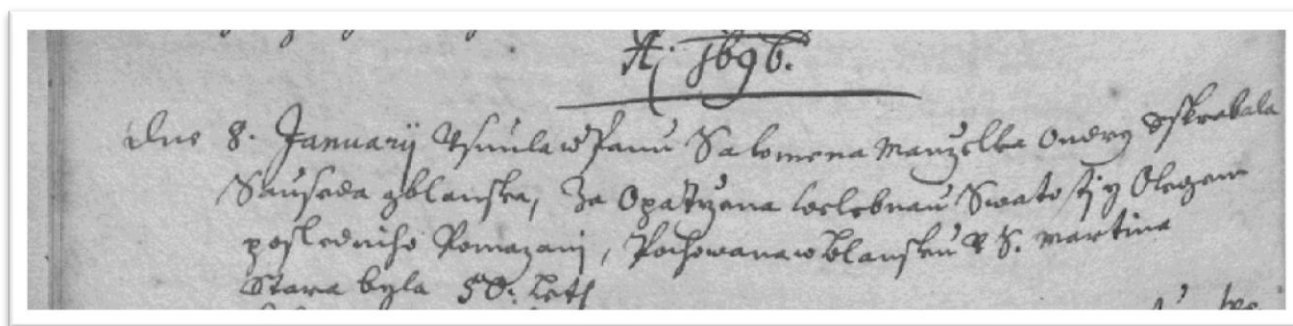 A. 1696.
dne 8. Januarij Usnula w Panu Salomena Manzelka Ondry
Sauseda z blanska, Za Opatrzena welebnau Swatosti y Olegem
posledniho Pomazani, Pochowana w blansku u S. Martina
Stara byla 50. Leth